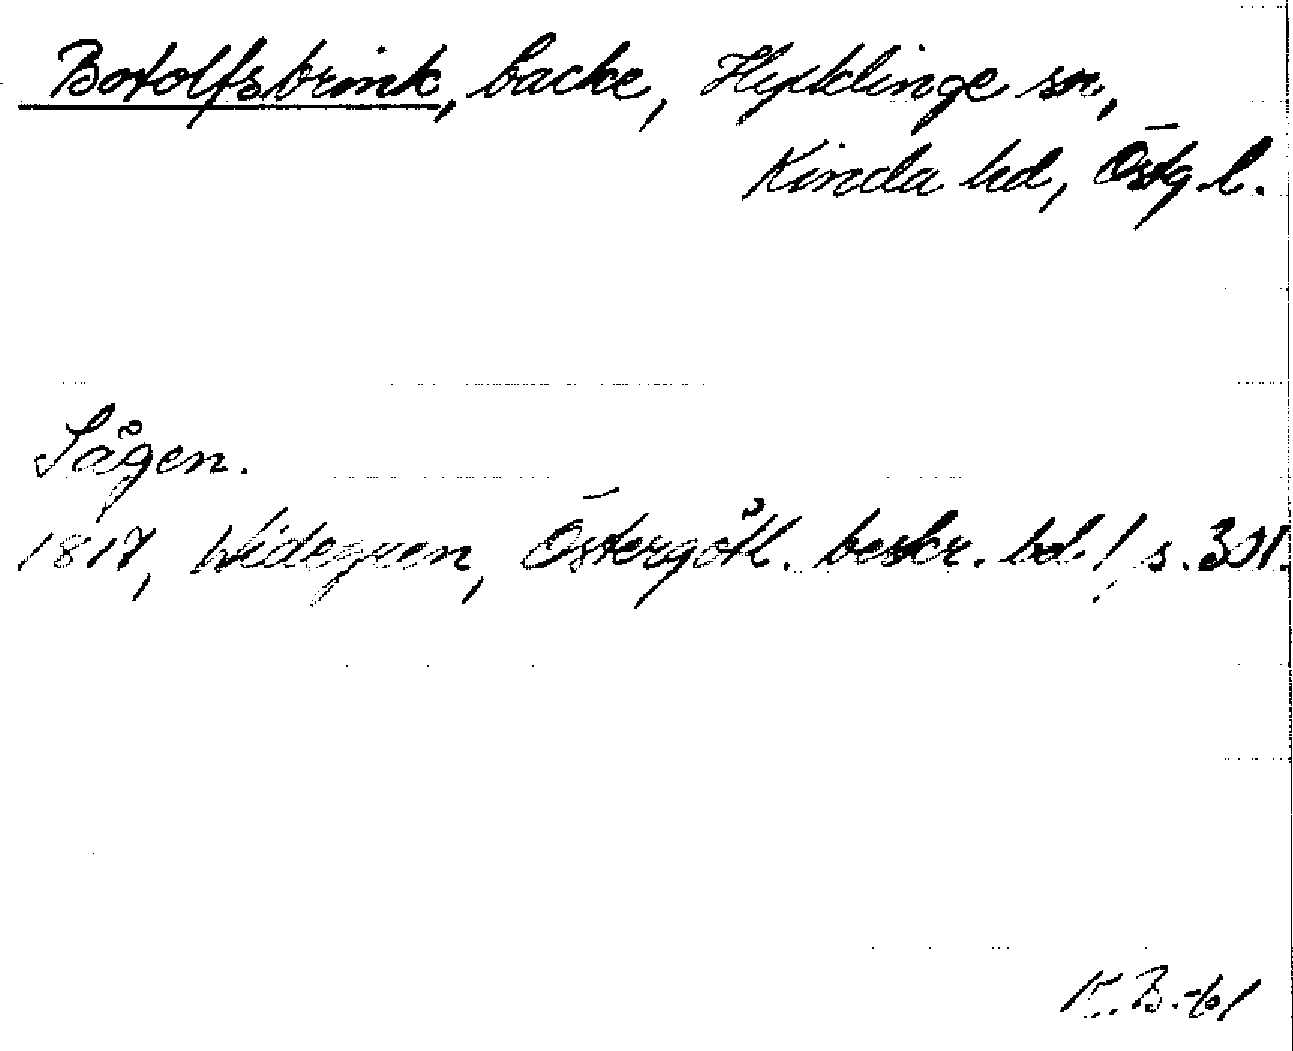 Botolfsbrink, backe, Hycklinge sn,
Kinda hd, Östg. l.
Sägen.
1817, Widegren, Östergötl. beskr. bd. 1, s. 301.
K. B. -61